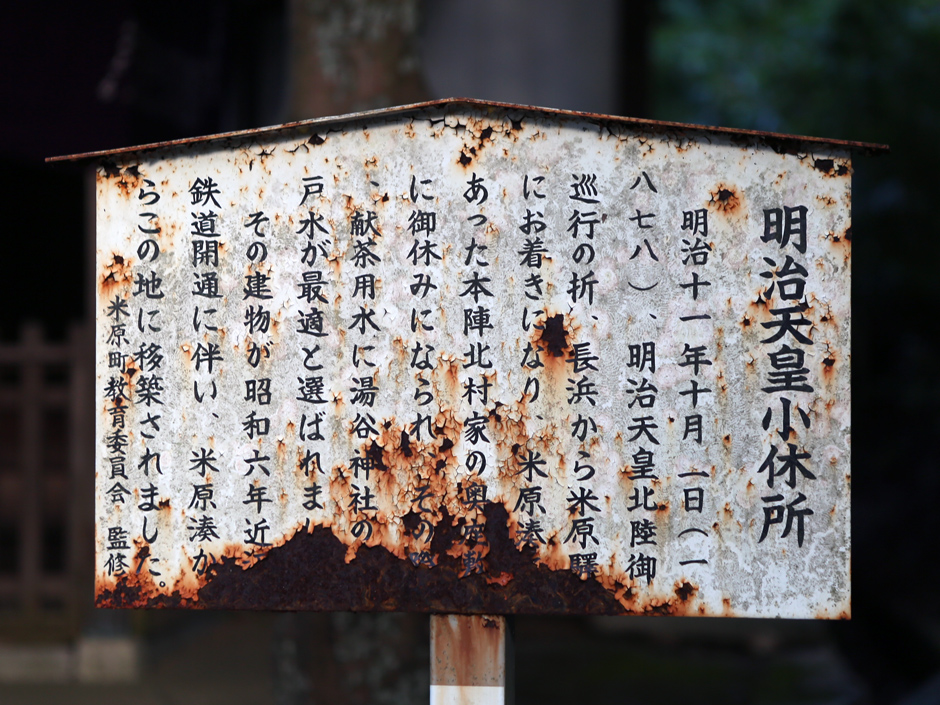 明治天皇小休所
明治十一年十月一日(一
八七八)、明治天皇北陸御
巡行の折、長浜から米原驛
にお着きになり、米原湊
あった本陣北村家の奥座敷
に御休みになられ、その際
、献茶用水に湯谷神社の
戸水が最適と選ばれまし
その建物が昭和六年近
鉄道開通に伴い、米原湊か
らこの地に移築されました。
米原町教育委員会 監修